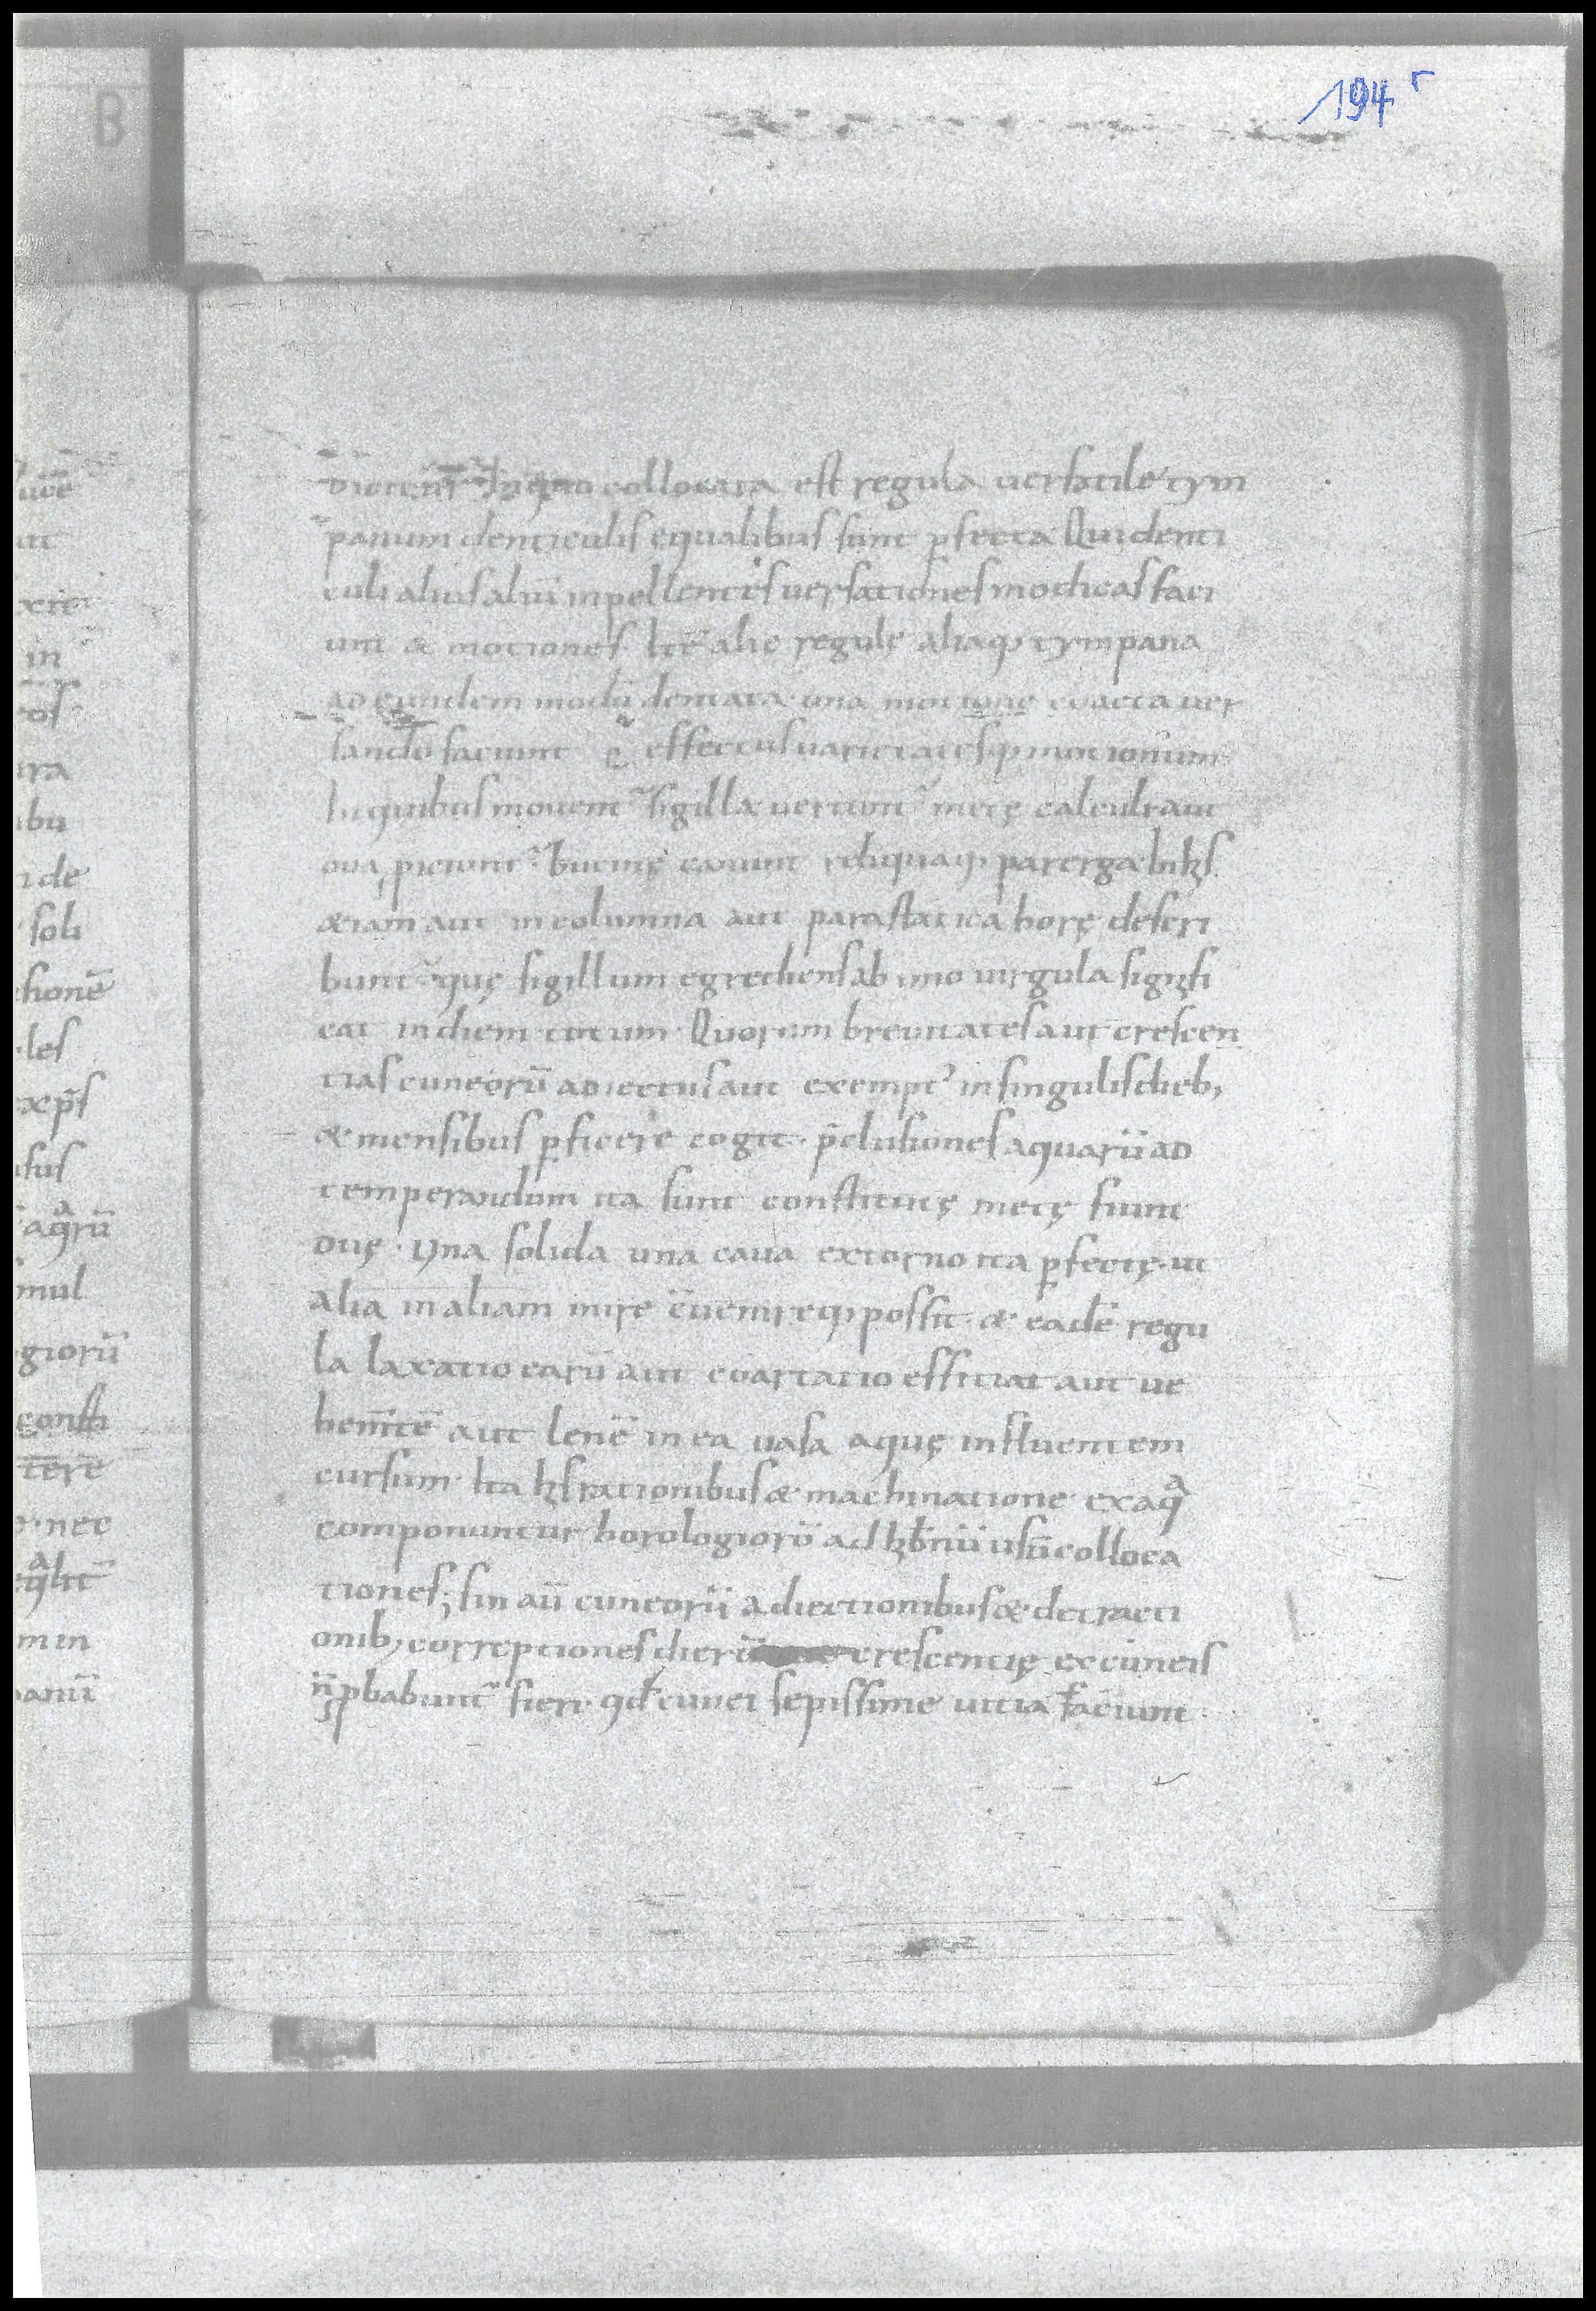 194 r
B
dicitur In quo collocata est regula uersatile tym
panum denticulis equalibus sunt ꝑfecta Qui denti
culi alius aliū inpellentes uersationes modicas faci
unt & motiones. Itē alie regulę aliaq; tympana
ad eundem modū dentata una motione coacta uer
sando faciunt effectus uarietatesq; motionum
In quibus mouent᷑ sigilla uertunt᷑ metę calculi aut
oua piciunt᷑ bucinę canunt reliquaq; parerga In his
&iam aut in columna aut parastatica horę descri
bunt᷑ quę sigillum egrediens ab imo uirgula signifi
cat in diem totum Quorum breuitates aut crescen
tias cuneorū adiectus aut exempt᷒ in singulis dieb;
& mensibus ꝑficere cogit. p̄clusiones aquarū ad
temperandum ita sunt constitutę metę fiunt
duę. Una solida una caua ex torno ita ꝑfectę. ut
alia in aliam inire c̄uenireq; possit. & eadē regu
la laxatio earū aut coartatio efficiat aut ue
hem̄tē aut lenē in ea uasa aquę influentem
cursum. Ita his rationibus & machinatione ex aqͣ
componuntur horologiorū ad hibernū usū colloca
tiones; sin aū cuneorū adiectionibus & detracti
onib; correptiones dierū crescentię ex cuneis
n̄ ꝓbabunt᷑ fieri. qđ cunei sepissime uitia faciunt